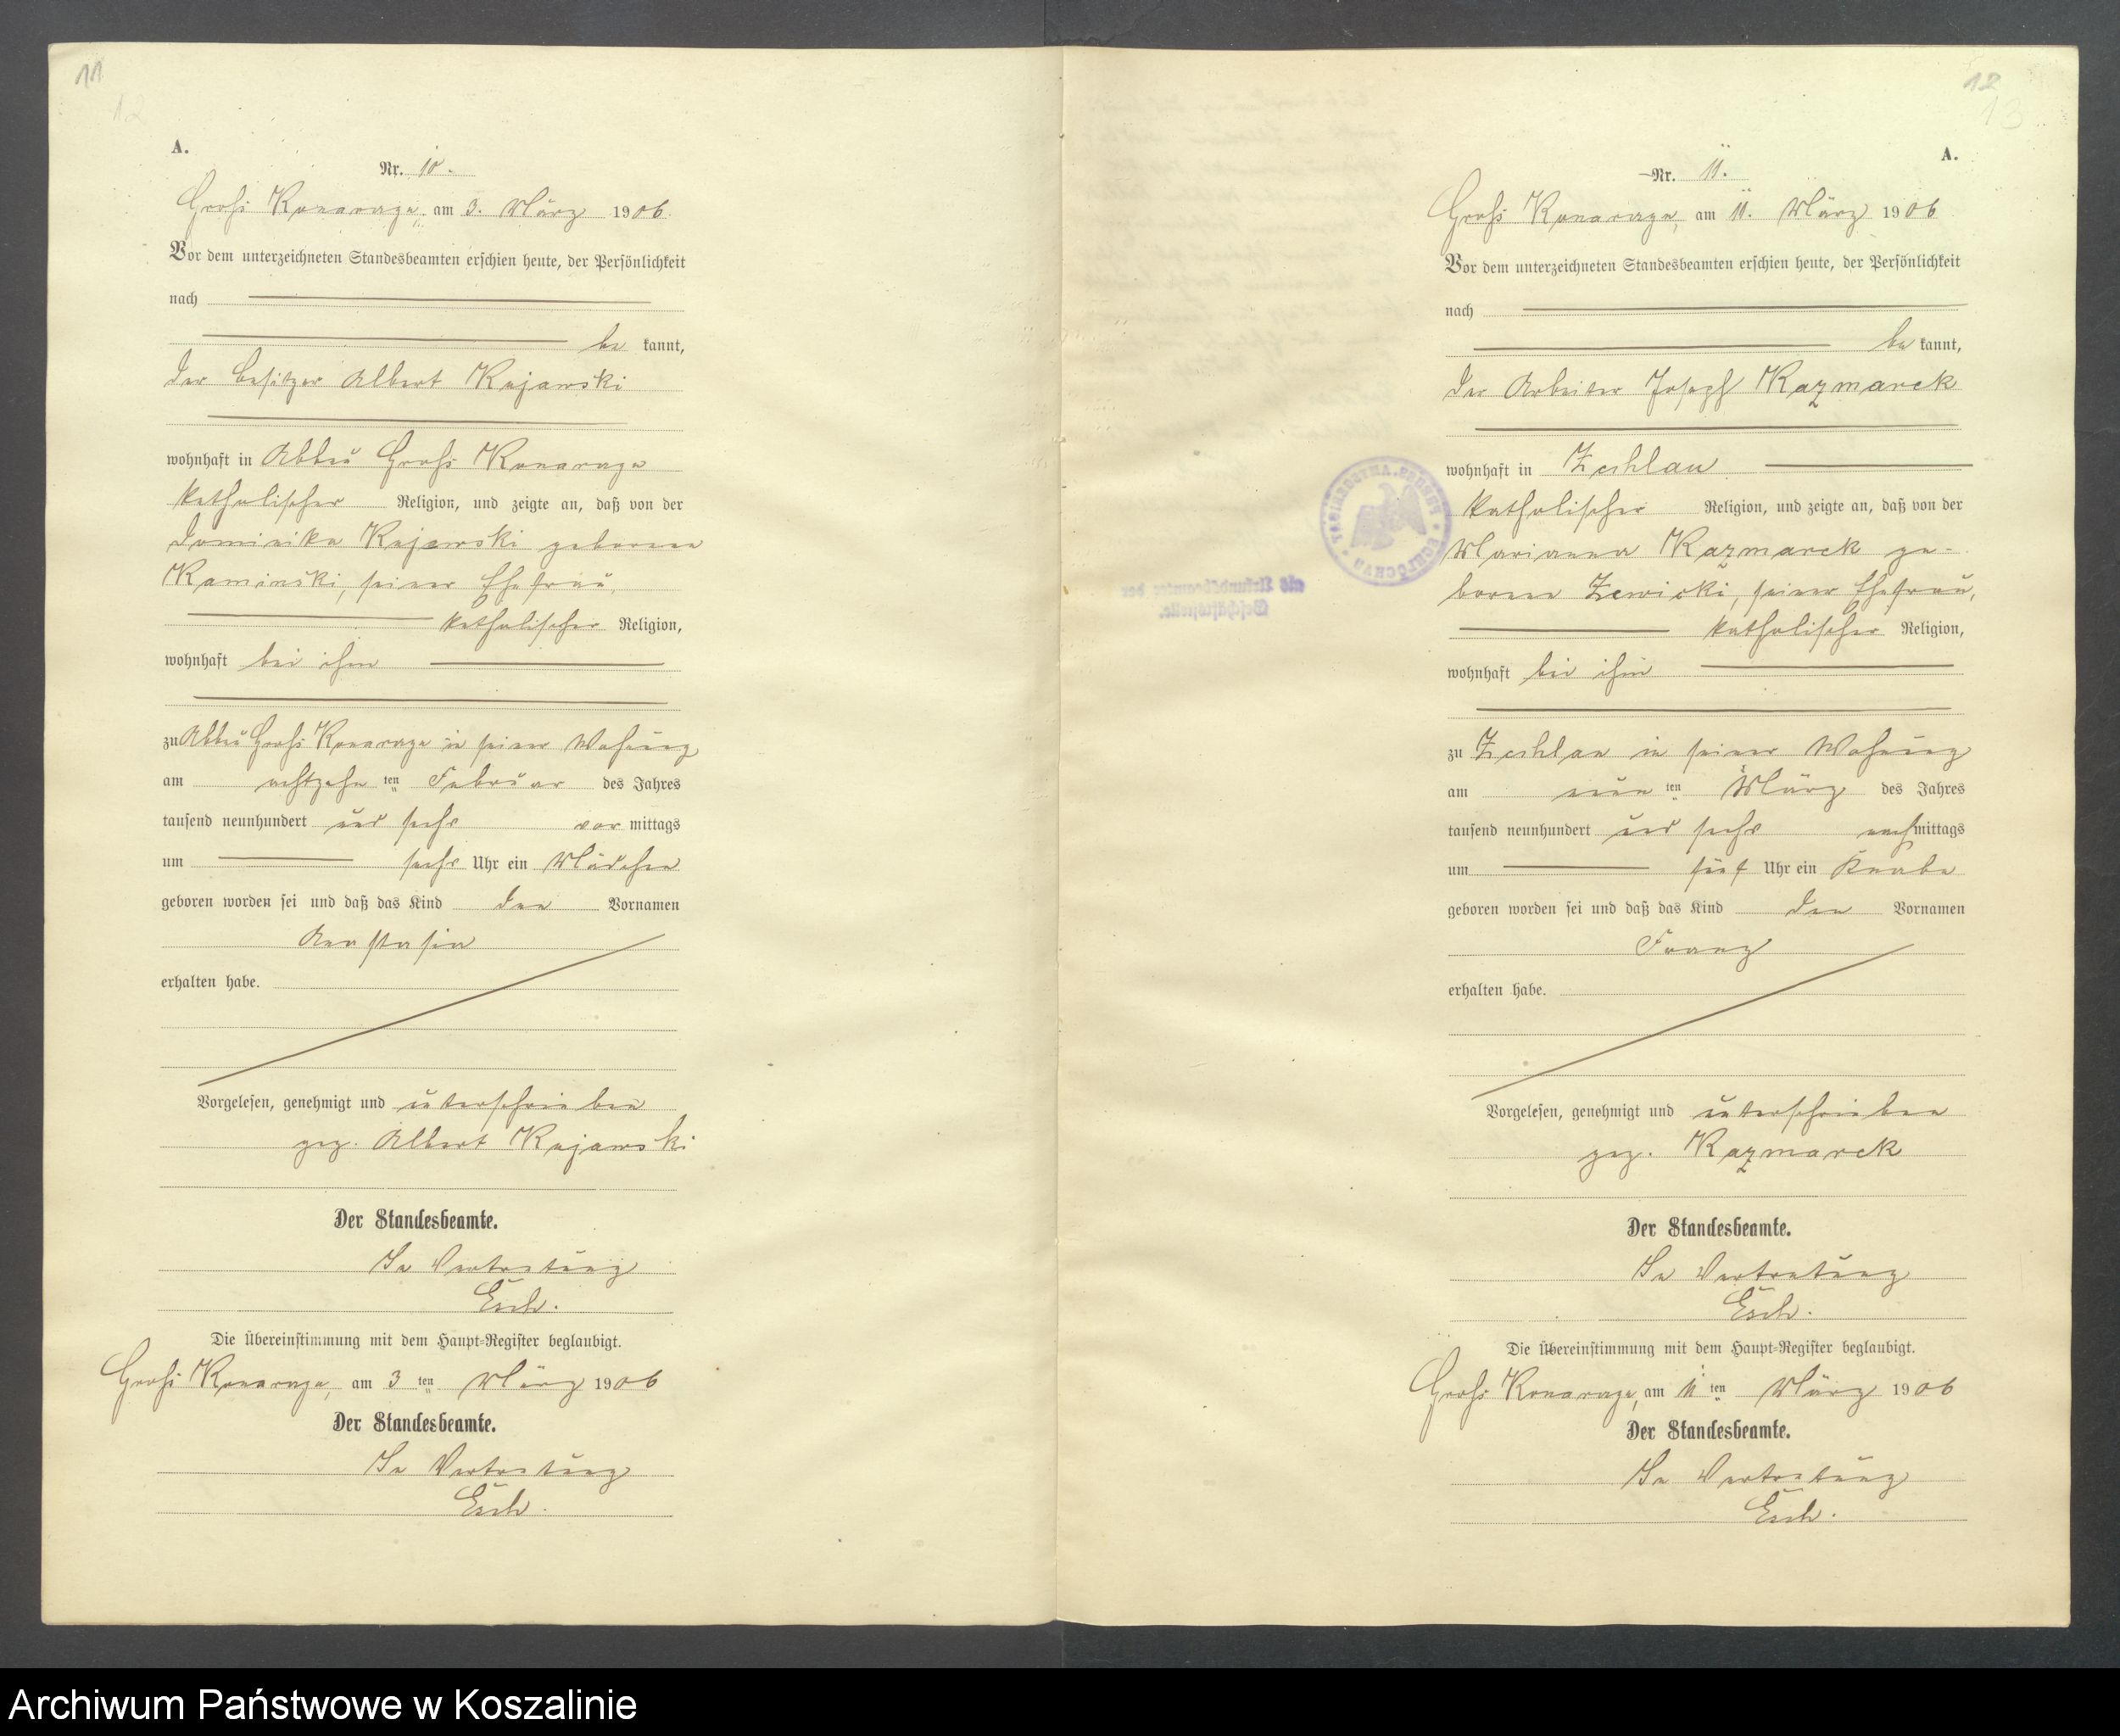 11
12
A.
Nr. 10.
Groß Konarzyn, am 3. März 1906.
Vor dem unterzeichneten Standesbeamten erschien heute, der Persönlichkeit
nach
be kannt,
der Besitzer Albert Kujawski
wohnhaft in Abbau Groß Konarzyn
katholischer Religion, und zeigte an, daß von der
Dominika Kujawski geborenen
Kaminski, seiner Ehefrau,
katholischer Religion,
wohnhaft bei ihm
zu Abbau Groß Konarzyn in seiner Wohnung
am achtzehn ten Februar des Jahres
tausend neunhundert und sechs vor mittags
um sechs Uhr ein Mädchen
geboren worden sei und daß das Kind den Vornamen
Anastasia
erhalten habe.
Vorgelesen, genehmigt und unterschrieben
gez. Albert Kujawski
Der Standesbeamte.
In Vertretung
Esch.
Die Übereinstimmung mit dem Haupt-Register beglaubigt.
Groß Konarzyn, am 3 ten März 1906
Der Standesbeamte.
In Vertretung
Esch.
12
13
A.
Nr. 11.
Groß Konarzyn, am 11. März 1906
Vor dem unterzeichneten Standesbeamten erschien heute, der Persönlichkeit
nach
be kannt,
der Arbeiter Joseph Kazmarek
wohnhaft in Zechlau
katholischer Religion, und zeigte an, daß von der
Marianna Kazmarek ge-
borenen Zewicki, seiner Ehefrau,
katholischer Religion,
wohnhaft bei ihm
zu Zechlau in seiner Wohnung
am neun ten März des Jahres
tausend neunhundert und sechs nach mittags
um fünf Uhr ein Knabe
geboren worden sei und daß das Kind den Vornamen
Franz
erhalten habe.
Vorgelesen, genehmigt und unterschrieben
gez. Kazmarek
Der Standesbeamte.
In Vertretung
Esch.
Die Übereinstimmung mit dem Haupt-Register beglaubigt.
Groß Konarzyn, am 11 ten März 1906
Der Standesbeamte.
In Vertretung
Esch.
Archiwum Państwowe w Koszalinie